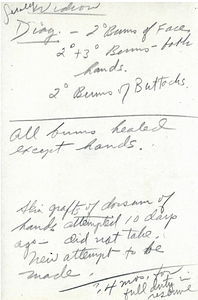 Diag. - 2° Burns of Face
2° + 3° Burns - both
hands.
2° Burns of Buttocks.
All burns healed
except hands.
Skin graft of dorsum of
hands attempted 10 days
ago - did not take.
New attempt to be
made.
? 4 mos. for
full duty in